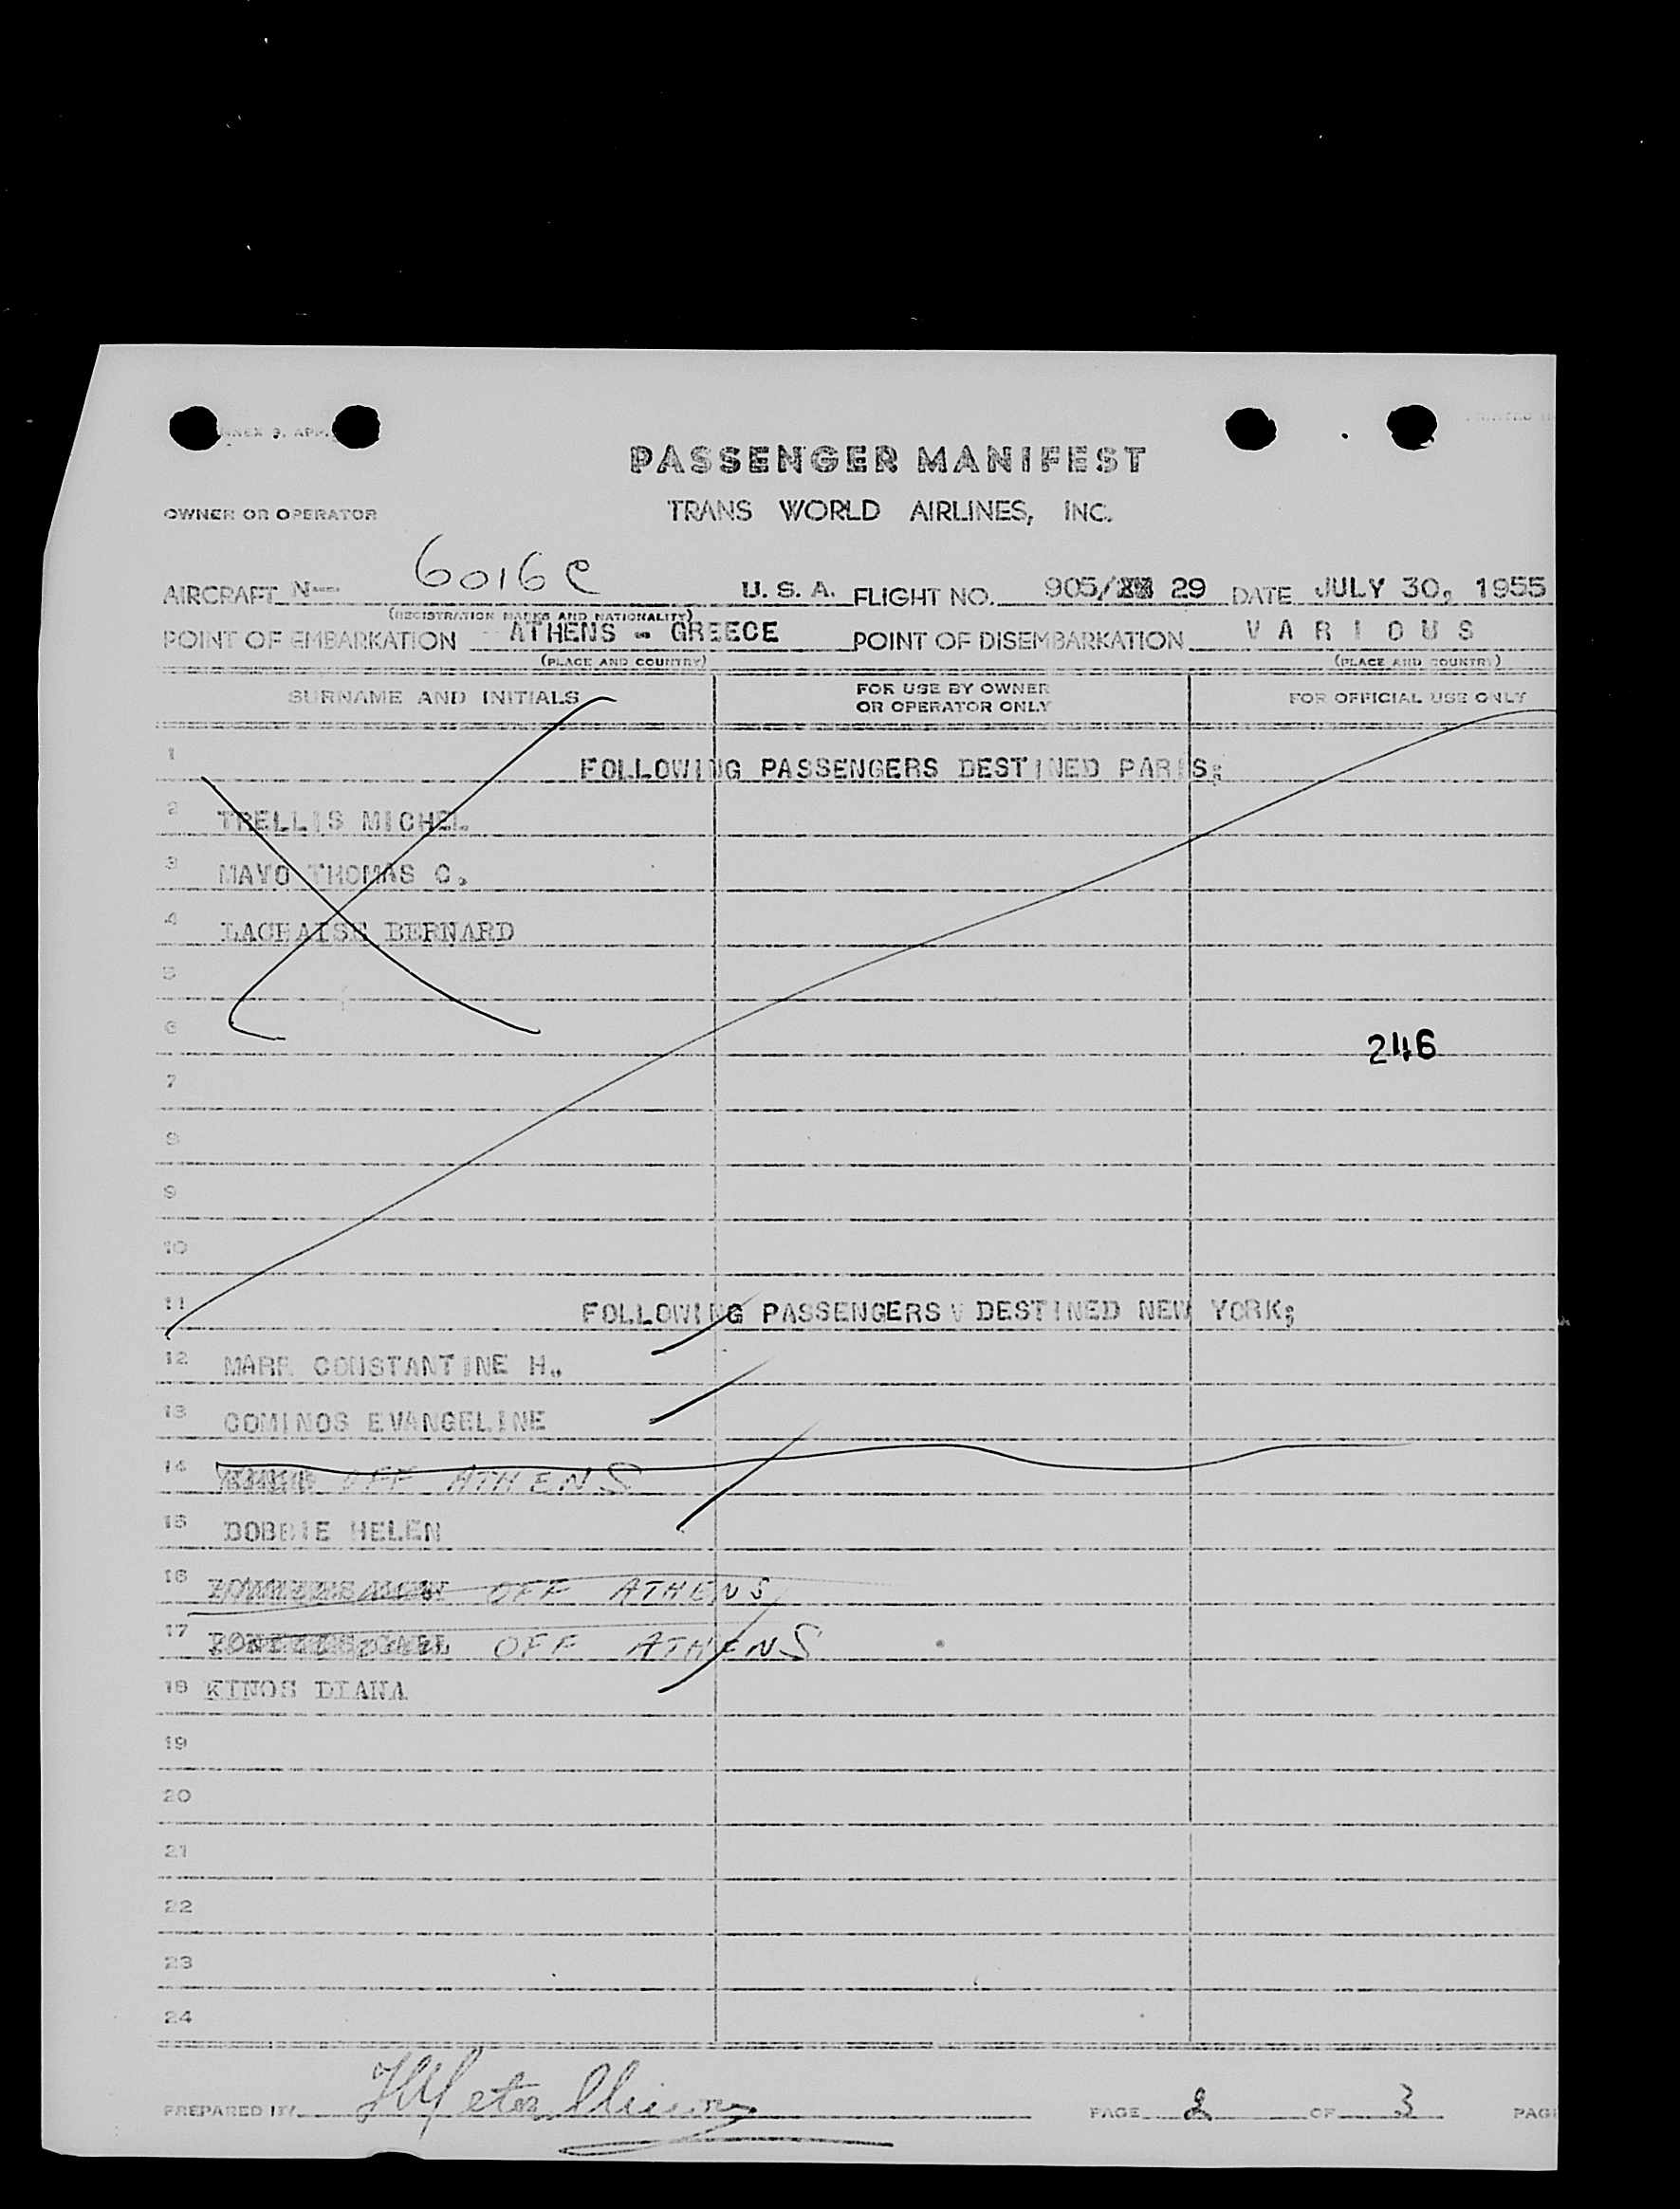 PASSENGER MANIFEST
OWNER OR OPERATOR TRANS WORLD AIRLINES, INC.
AIRCRAFT N— 6016C U. S. A. FLIGHT NO. 905/ 29 DATE JULY 30, 1955
(REGISTRATION MARKS AND NATIONALITY)
POINT OF EMBARKATION ATHENS - GREECE POINT OF DISEMBARKATION V A R I O U S
(PLACE AND COUNTRY) (PLACE AND COUNTRY)
SURNAME AND INITIALS FOR USE BY OWNER OR OPERATOR ONLY FOR OFFICIAL USE ONLY
1 FOLLOWING PASSENGERS DESTINED PARIS;
2 TRELLIS MICHEL
3 MAYO THOMAS C.
4 LACHAISE BERNARD
5
6 246
7
8
9
10
11 FOLLOWING PASSENGERS DESTINED NEW YORK;
12 MARR CONSTANTINE H.
13 COMINOS EVANGELINE
14 OFF ATHENS
15 DOBBIE HELEN
16 OFF ATHENS
17 OFF ATHENS
18 KINOS DIANA
19
20
21
22
23
24
PREPARED BY PAGE 2 OF 3 PAG